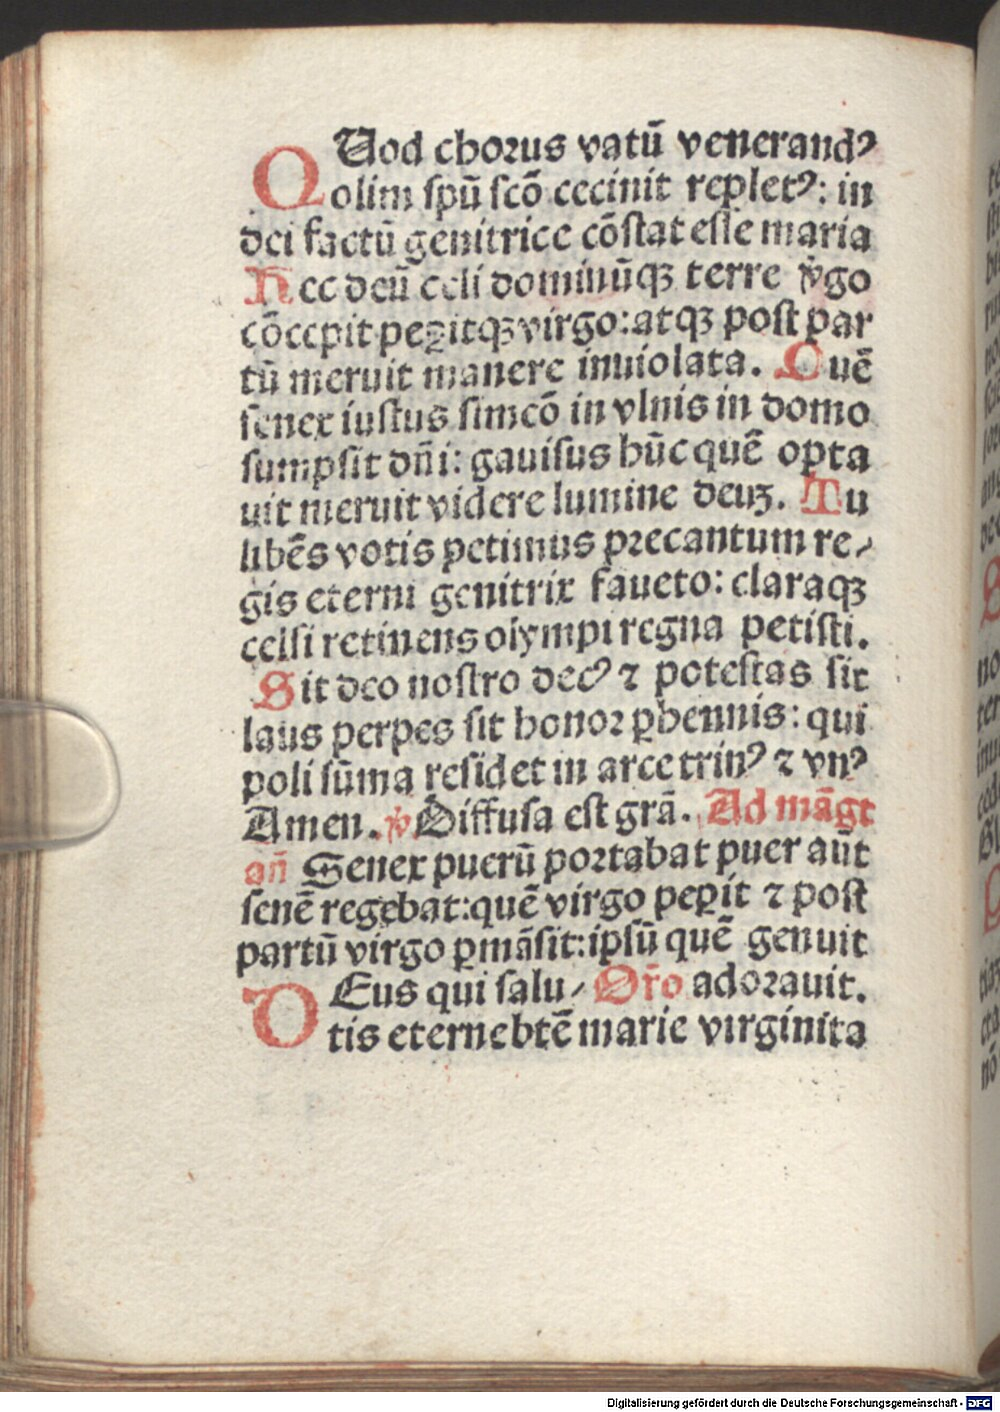 QUod chorus vatū venerandꝰ
olim spū scō cecinit repletꝰ: in
dei factū genitrice cōstat esse maria
Hec deū celi dominūqꝫ terre v̾go
cōcepit peꝑitqꝫ virgo: atqꝫ post par
tū meruit manere inuiolata. Quē
senex iustus simeō in vlnis in domo
sumpsit dn̄i: gauisus hūc quē opta
uit meruit videre lumine deuꝫ. Tu
libēs votis petimus precantum re⸗
gis eterni genitrix faueto: claraqꝫ
celsi retinens olympi regna petisti.
Sit deo nostro decꝰ ⁊ potestas sit
laus perpes sit honor ꝑhennis: qui
poli sūma residet in arce trinꝰ ⁊ vnꝰ
Amen. ℣ Diffusa est grā. Ad māgt
an̄ Senex puerū portabat puer aūt
senē regebat: quē virgo peꝑit ⁊ post
partū virgo ꝑmāsit: ipsū quē genuit
DEus qui salu⸗ Or̄o adorauit.
tis eterne btē marie virginita
Digitalisierung gefördert durch die Deutsche Forschungsgemeinschaft - DFG